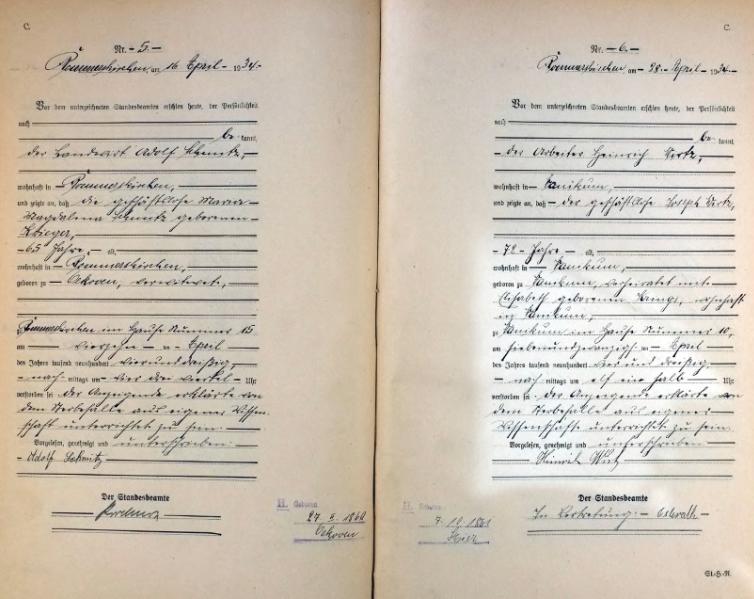 C.
Nr. - 5. -
Rommerskirchen am 16 April 1934.
Vor dem unterzeichneten Standesbeamten erschien heute, der Persönlichkeit
nach
be kannt,
der Landwirt Adolf Schmitz,
wohnhaft in Rommerskirchen,
und zeigte an, daß die geschäftslose Maria
Magdalena Schmitz geborenen
Krieger,
- 65 Jahre, - alt,
wohnhaft in Rommerskirchen,
geboren zu Oekoven, verwitwet,
zu Rommerskirchen im Hause Nummer 15
am vierzehn - n - April
des Jahres tausend neunhundert vierunddreißig,
- nach - mittags um - vier drei viertel - Uhr
verstorben sei. Der Anzeigende erklärte von
dem Sterbefalle aus eigener Wissen
schaft unterrichtet zu sein.
Vorgelesen, genehmigt und unterschrieben
- Adolf Schmitz
Der Standesbeamte
H. Geboren
Oekoven
C.
Nr. - 6. -
Rommerskirchen am 28. April 1934.
Vor dem unterzeichneten Standesbeamten erschien heute, der Persönlichkeit
nach
be kannt,
- der Arbeiter Heinrich Wirtz,
wohnhaft in Vanikum,
und zeigte an, daß - der geschäftslose Joseph Wirtz,
- 72 - Jahre - alt,
wohnhaft in Vanikum,
geboren zu Vanikum, verheiratet mit
Elisabeth geborenen wohnhaft
in Vanikum,
zu Vanikum im Hause Nummer 10,
am siebenundzwanzigsten April
des Jahres tausend neunhundert vier und dreißig
- nach - mittags um elf ein halb - Uhr
verstorben sei. Der Anzeigende erklärte von
dem Sterbefalle aus eigener
Wissenschaft unterrichtet zu sein.
Vorgelesen, genehmigt und unterschrieben
Heinrich Wirtz
Der Standesbeamte
In Vertretung:
H. Geboren
7. 10. 1861
St.-H.-A.